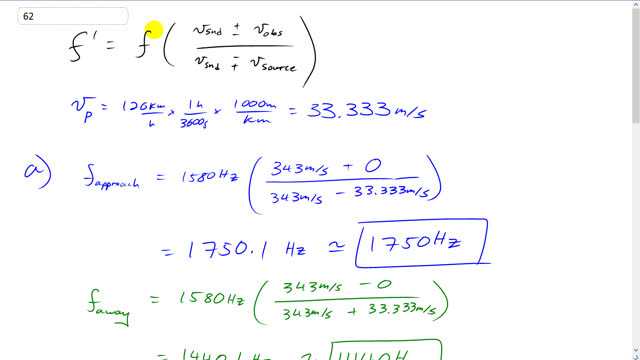 62
f' = f ( (v_snd ± v_obs) / (v_snd ∓ v_source) )
v_p = 120km/h × 1h/3600s × 1000m/km = 33.333 m/s
a) f_approach = 1580Hz ( (343m/s + 0) / (343m/s − 33.333m/s) )
= 1750.1 Hz ≃ 1750Hz
f_away = 1580Hz ( (343m/s − 0) / (343m/s + 33.333m/s) )